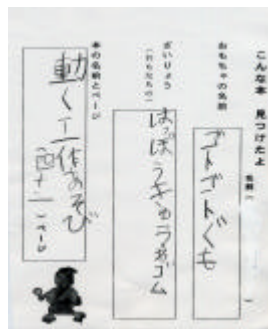 こんな本 見つけたよ
名前( )
おもちゃの名前
ゴトゴトぐも
ざいりょう
はっぽうきゅう わゴム
本の名前とページ
動く工作あそび
(四十二)ページ